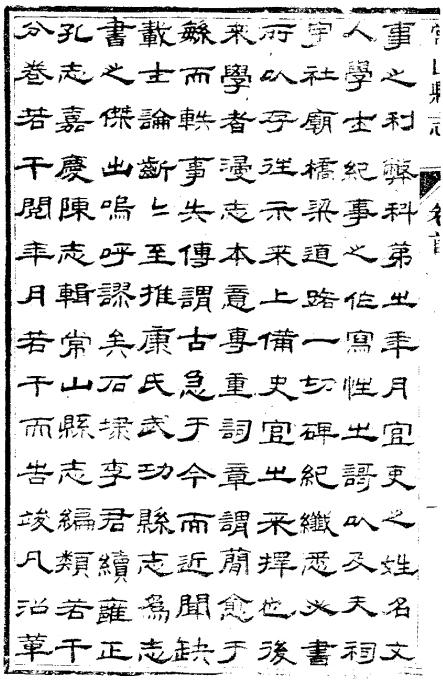 常山縣志 卷首
事之利弊科第之年月宜吏之姓名文
人學士紀事之作寫性之謌以及夫祠
宇社廟橋梁道路一切碑紀纖悉必書
所以存往示來上備史官之采擇也後
來學者漫志本意專重詞章謂簡愈于
繇而軼事失傳謂古急于今而近聞缺
載士論齗齗至推康氏武功縣志為志
書之傑出嗚呼謬矣石埭李君續雍正
孔志嘉慶陳志輯常山縣志編類若干
分卷若干閱年月若干而告竣凡沿革